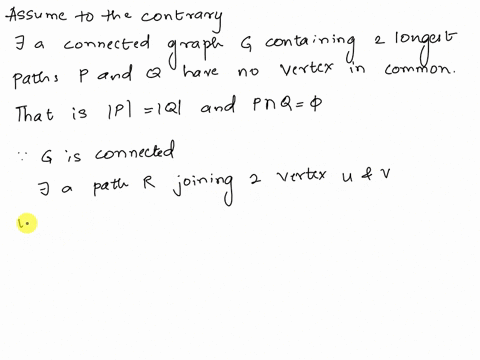 Assume to the contrary
∃ a connected graph G containing 2 longest
paths P and Q have no vertex in common.
That is |P| = |Q| and P∩Q = ϕ
∵ G is connected
∃ a path R joining 2 vertex u & v